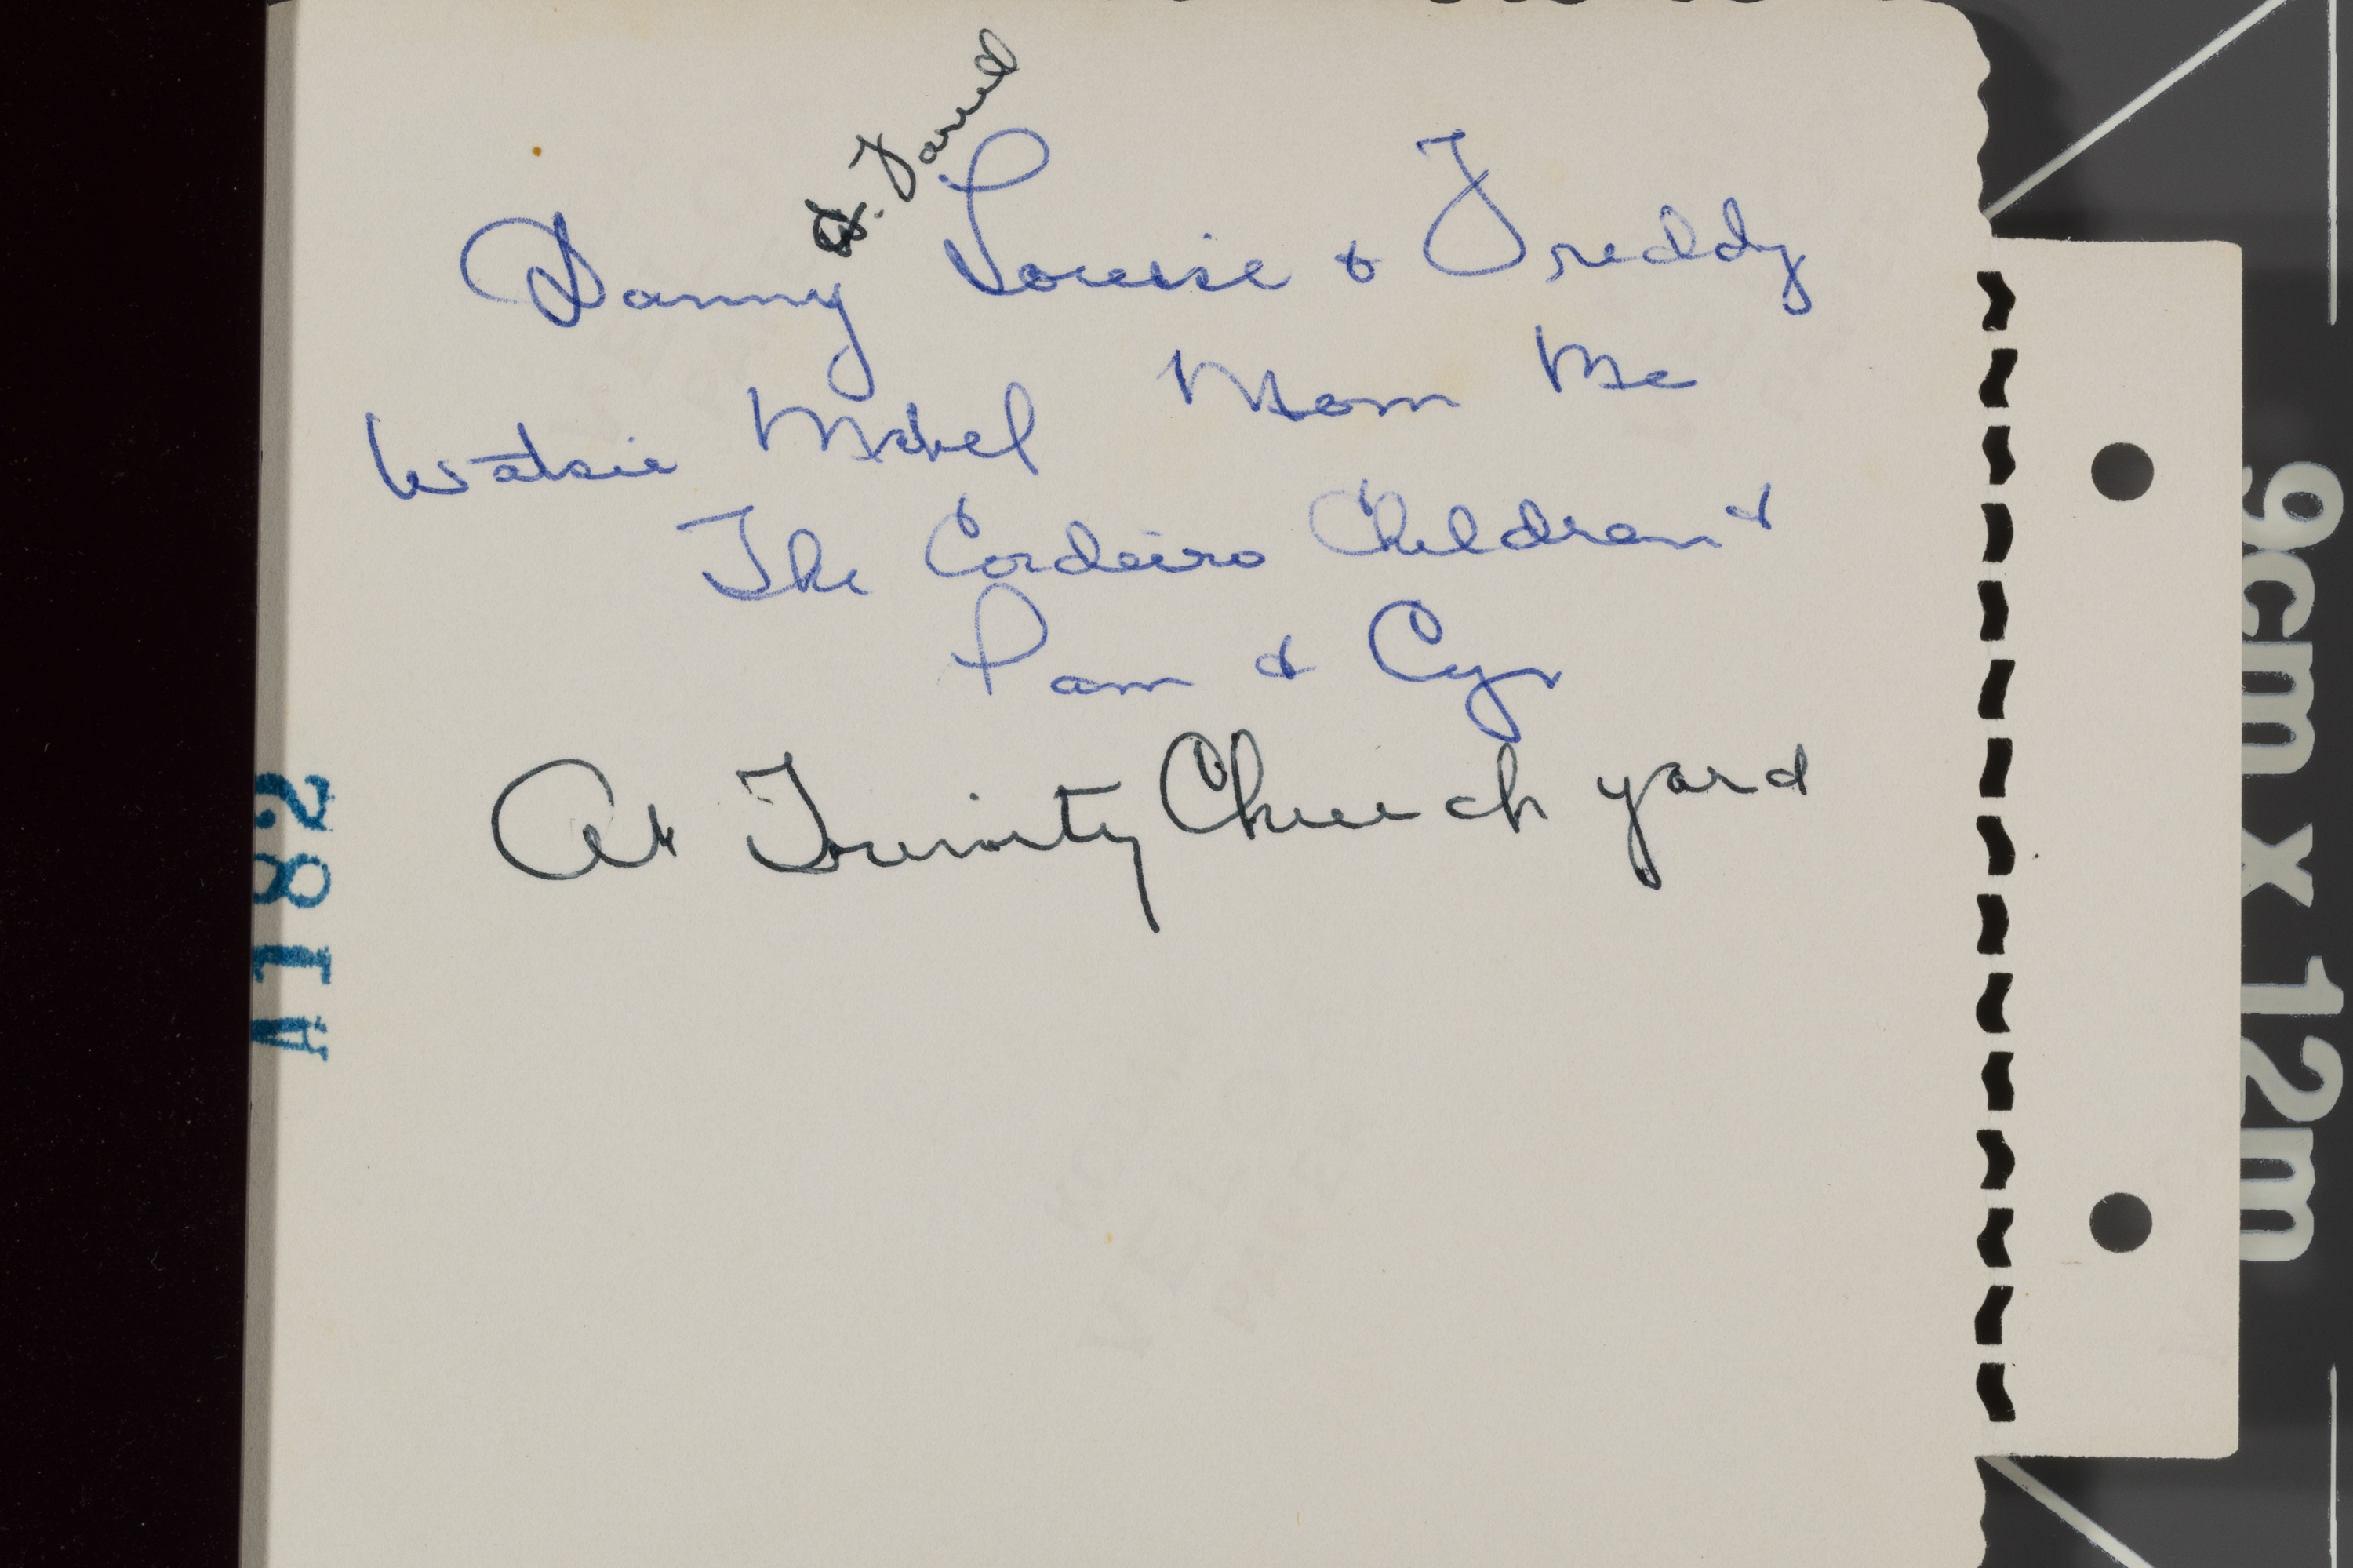 & Jared
Danny Louise & Freddy
Watsie Mabel Mom Me
The Cordeiro Children &
Pam & Cyr
At Trinity Church yard
A182
9cm x 12cm